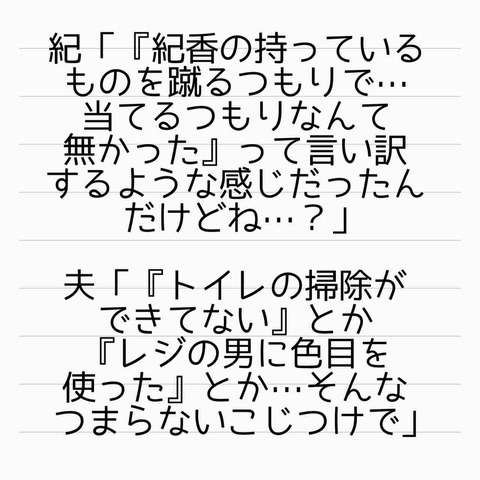 紀「『紀香の持っている
ものを蹴るつもりで…
当てるつもりなんて
無かった』って言い訳
するような感じだったん
だけどね…？」
夫「『トイレの掃除が
できてない』とか
『レジの男に色目を
使った』とか…そんな
つまらないこじつけで」